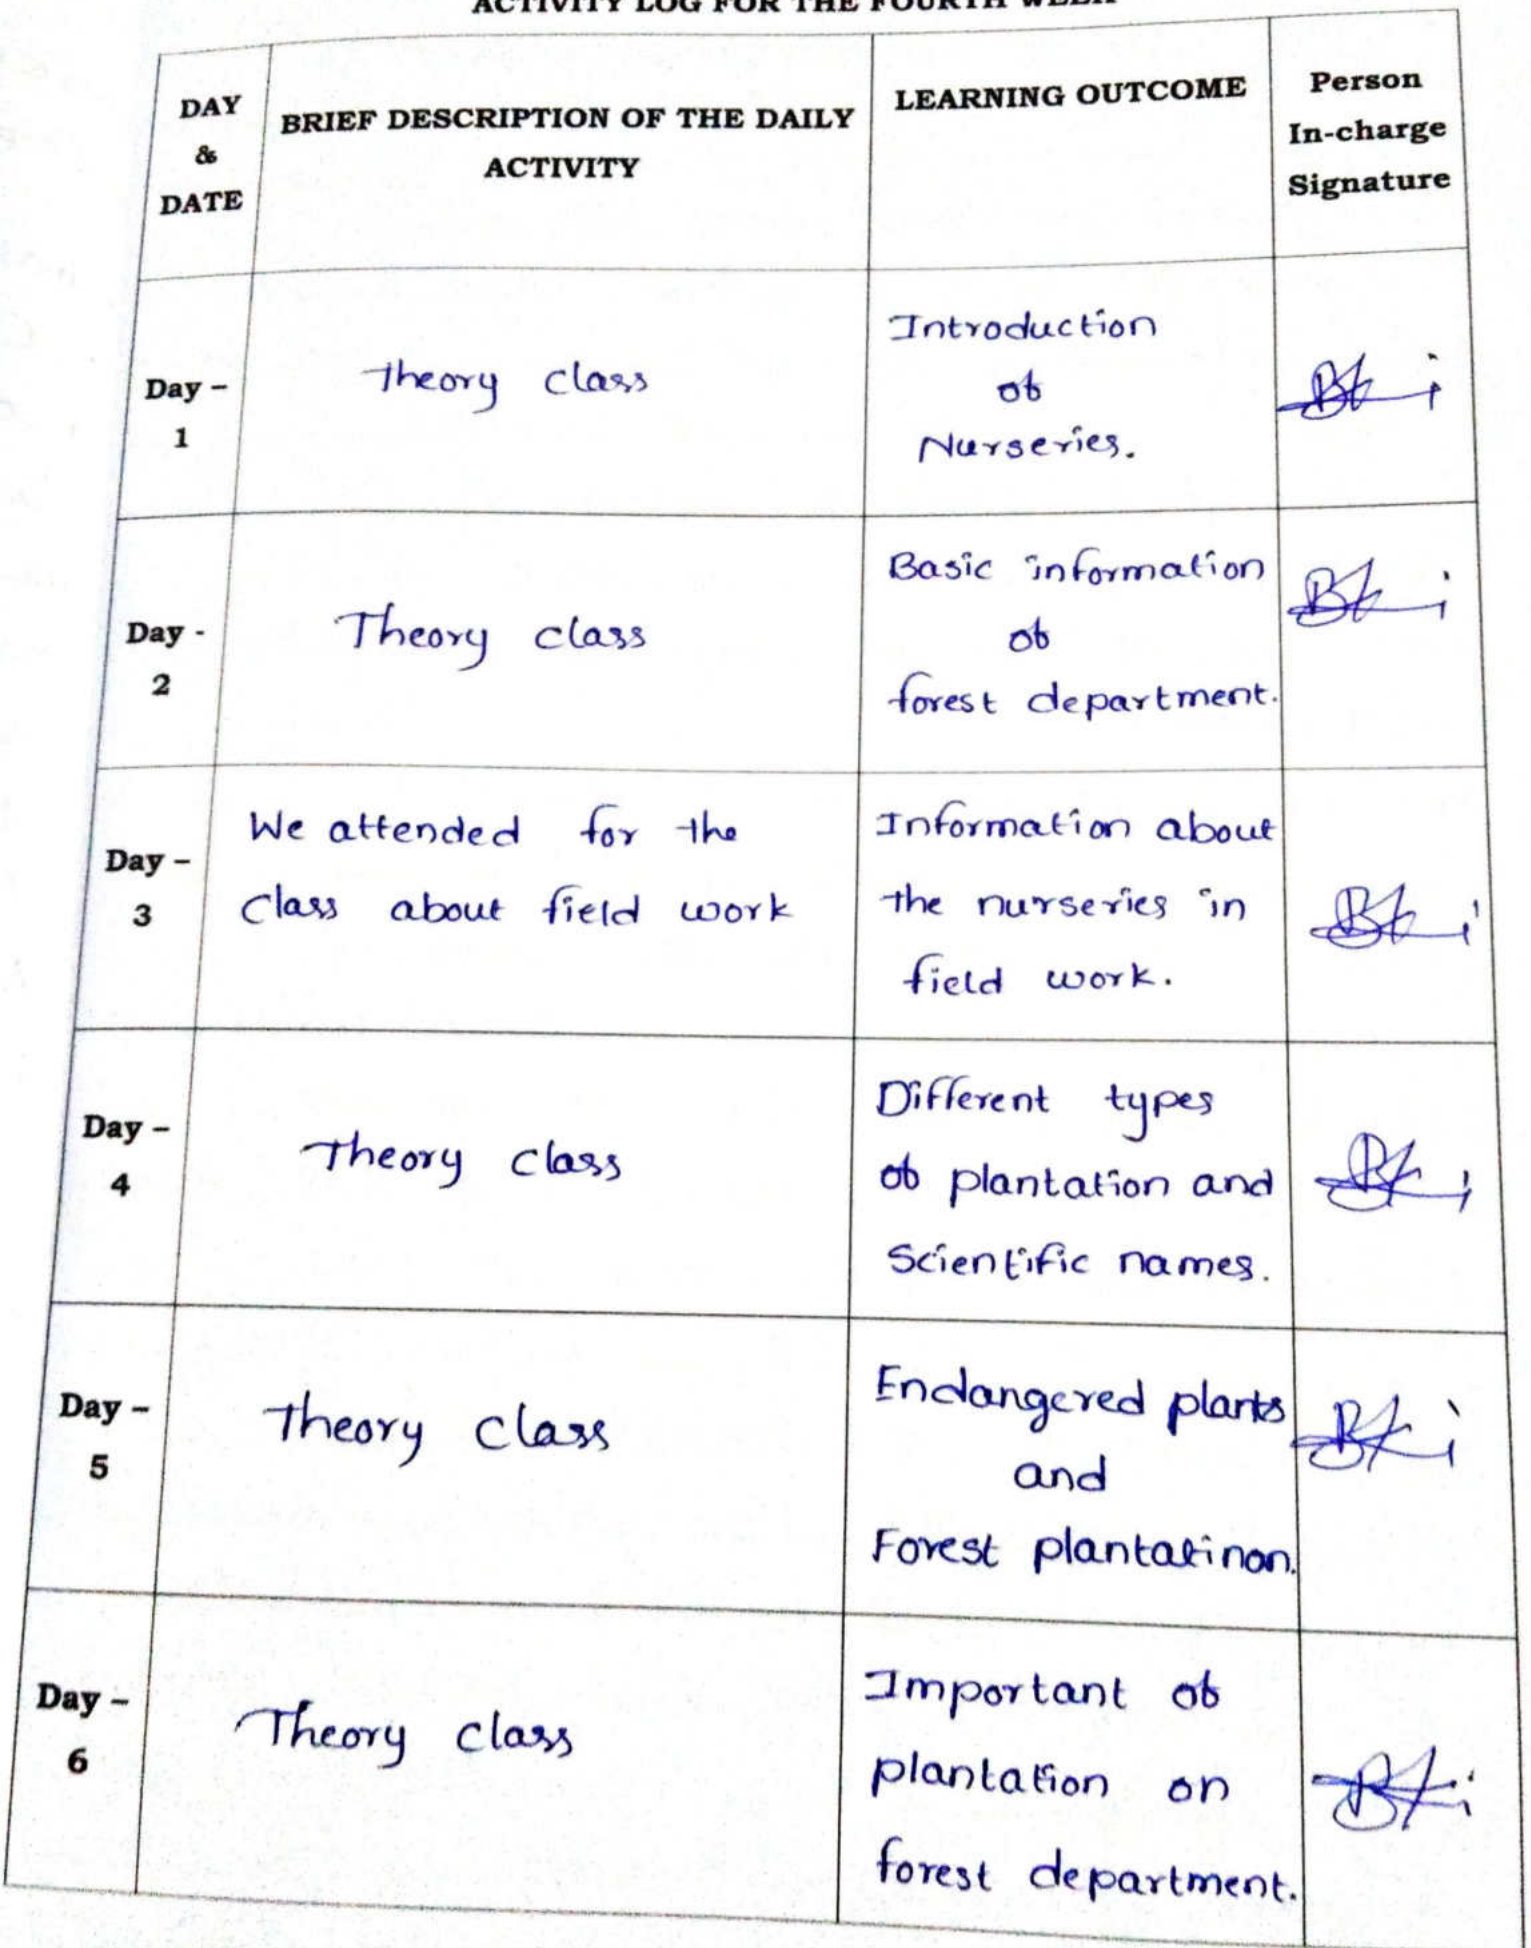 ACTIVITY LOG FOR THE FOURTH WEEK
DAY
&
DATE
BRIEF DESCRIPTION OF THE DAILY
ACTIVITY
LEARNING OUTCOME
Person
In-charge
Signature
Day –
1
Theory class
Introduction
of
Nurseries.
Day -
2
Theory class
Basic information
of
forest department.
Day –
3
We attended for the
class about field work
Information about
the nurseries in
field work.
Day –
4
Theory class
Different types
of plantation and
Scientific names.
Day –
5
Theory class
Endangered plants
and
Forest plantatinon.
Day –
6
Theory class
Important of
plantation on
forest department.